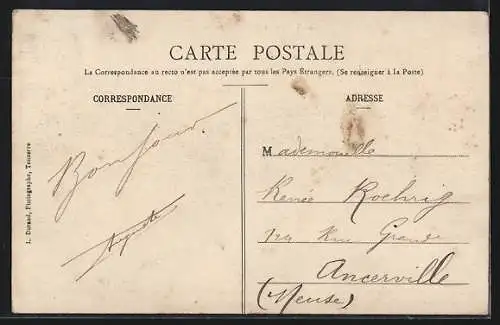 CARTE POSTALE
La Correspondance au recto n'est pas acceptée par tous les Pays Étrangers. (Se renseigner à la Poste)
CORRESPONDANCE
ADRESSE
L. Durand, Photographe, Tonnerre
Bonjour
Mademoiselle
Renée Roehrig
124 Rue Grande
Ancerville
(Meuse)